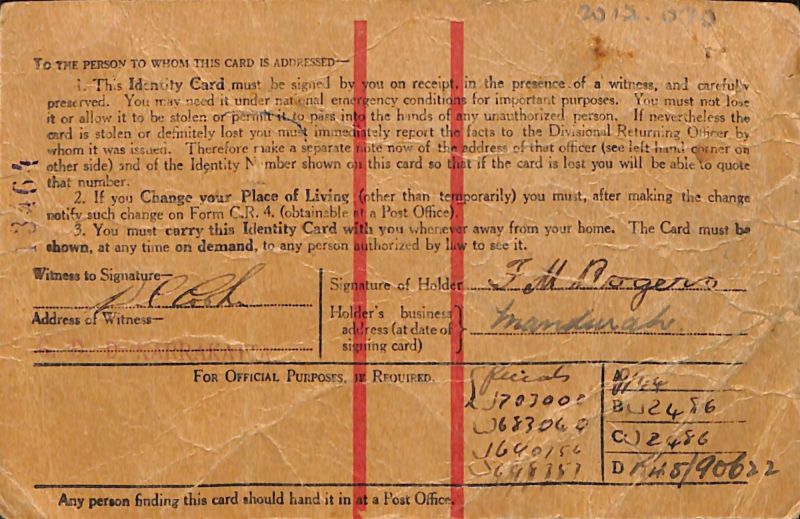 2012.070
TO THE PERSON TO WHOM THIS CARD IS ADDRESSED—
1. This Identity Card must be signed by you on receipt, in the presence of a witness, and carefully
preserved. You may need it under national emergency conditions for important purposes. You must not lose
it or allow it to be stolen or permit it to pass into the hands of any unauthorized person. If nevertheless the
card is stolen or definitely lost you must immediately report the facts to the Divisional Returning Officer by
whom it was issued. Therefore make a separate note now of the address of that officer (see left hand corner on
other side) and of the Identity Number shown on this card so that if the card is lost you will be able to quote
that number.
2. If you Change your Place of Living (other than temporarily) you must, after making the change
notify such change on Form C.R. 4. (obtainable at a Post Office).
3. You must carry this Identity Card with you whenever away from your home. The Card must be
shown, at any time on demand, to any person authorized by law to see it.
13464
Witness to Signature—
Address of Witness—
Signature of Holder F M Rogers
Holder's business
address (at date of
signing card)
Mandurah
FOR OFFICIAL PURPOSES, IF REQUIRED.
B W 2486
C W 2486
D R45/90622
Any person finding this card should hand it in at a Post Office.